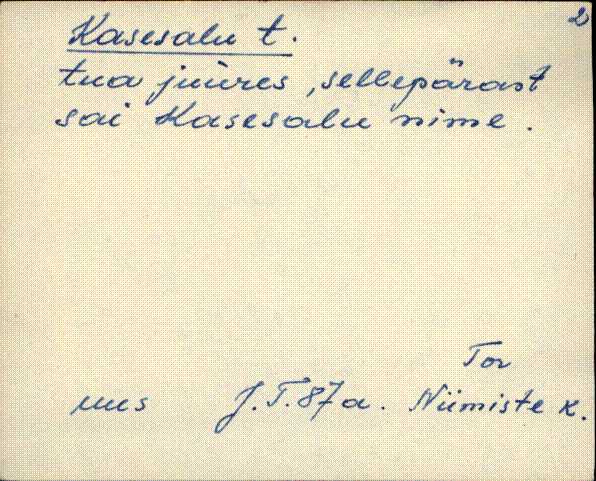 2
Kasesalu t.
tua juures, sellepärast
sai Kasesalu nime.
Tor
uus J.T.87a. Niimiste k.